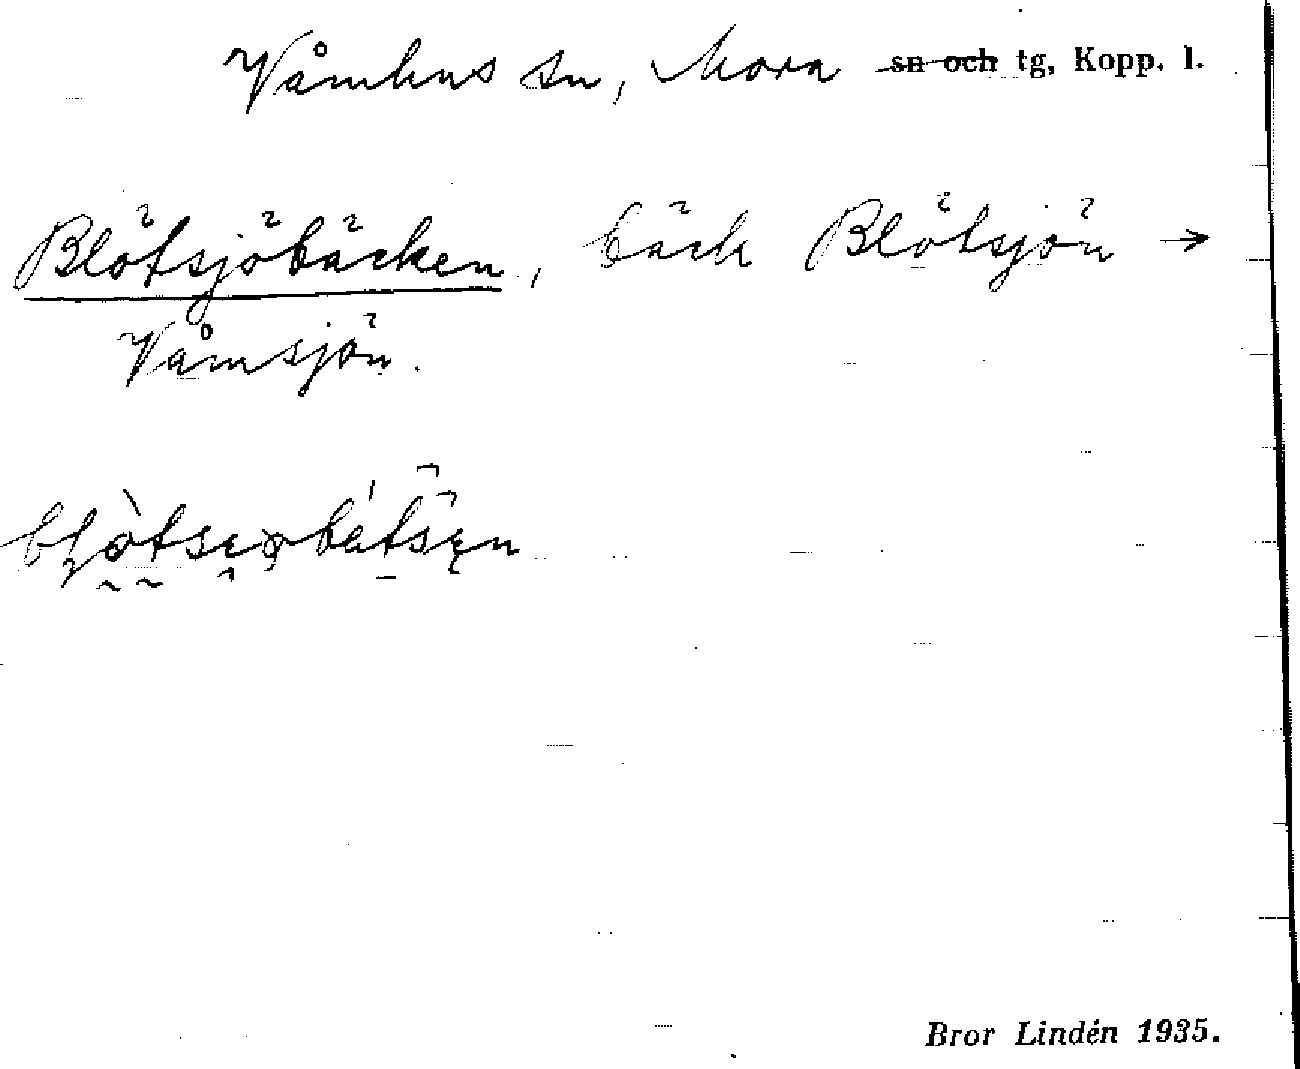 Våmhus sn, Mora sn och tg, Kopp. l.
Blötsjöbäcken, bäck Blötsjön →
Våmsjön.
Bror Lindén 1935.